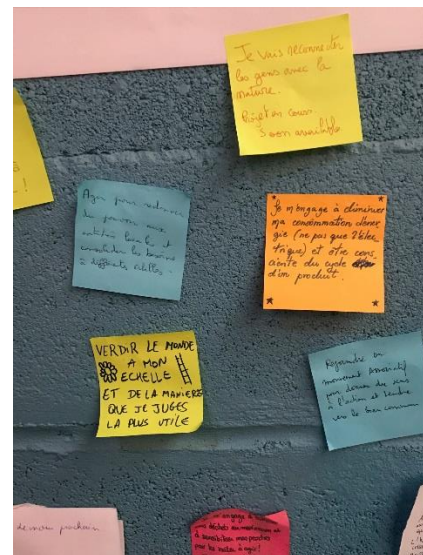 Je vais reconnecter
les gens avec la
nature.
Projet en cours
Agir pour redonner
du pouvoir aux
entités locales et
à différentes échelles.
Je m'engage à diminuer
ma consommation d'éner
gie (ne pas que l'élec
trique) et être cons
ciente du cycle
d'un produit.
VERDIR LE MONDE
A MON
ECHELLE
ET DE LA MANIERE
QUE JE JUGES
LA PLUS UTILE
Rejoindre un
mouvement associatif
pour donner du sens
à l'action et tendre
vers le bien commun
prochain
engage à
déchets au maximum et
à sensibiliser mes proches
pour les inciter à agir !